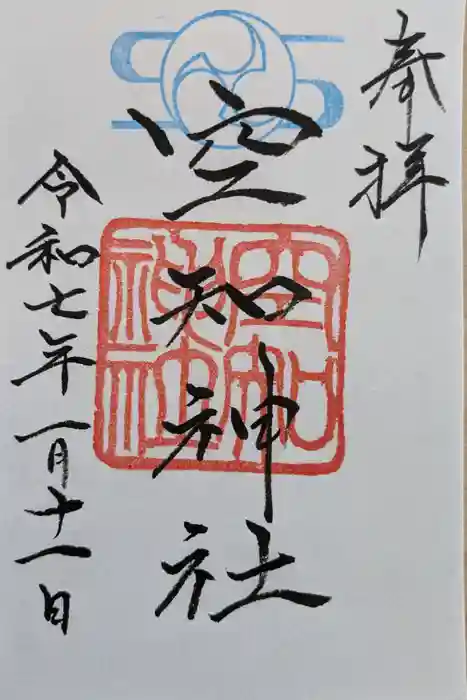 奉拝
空知神社
空知神社
令和七年一月十一日